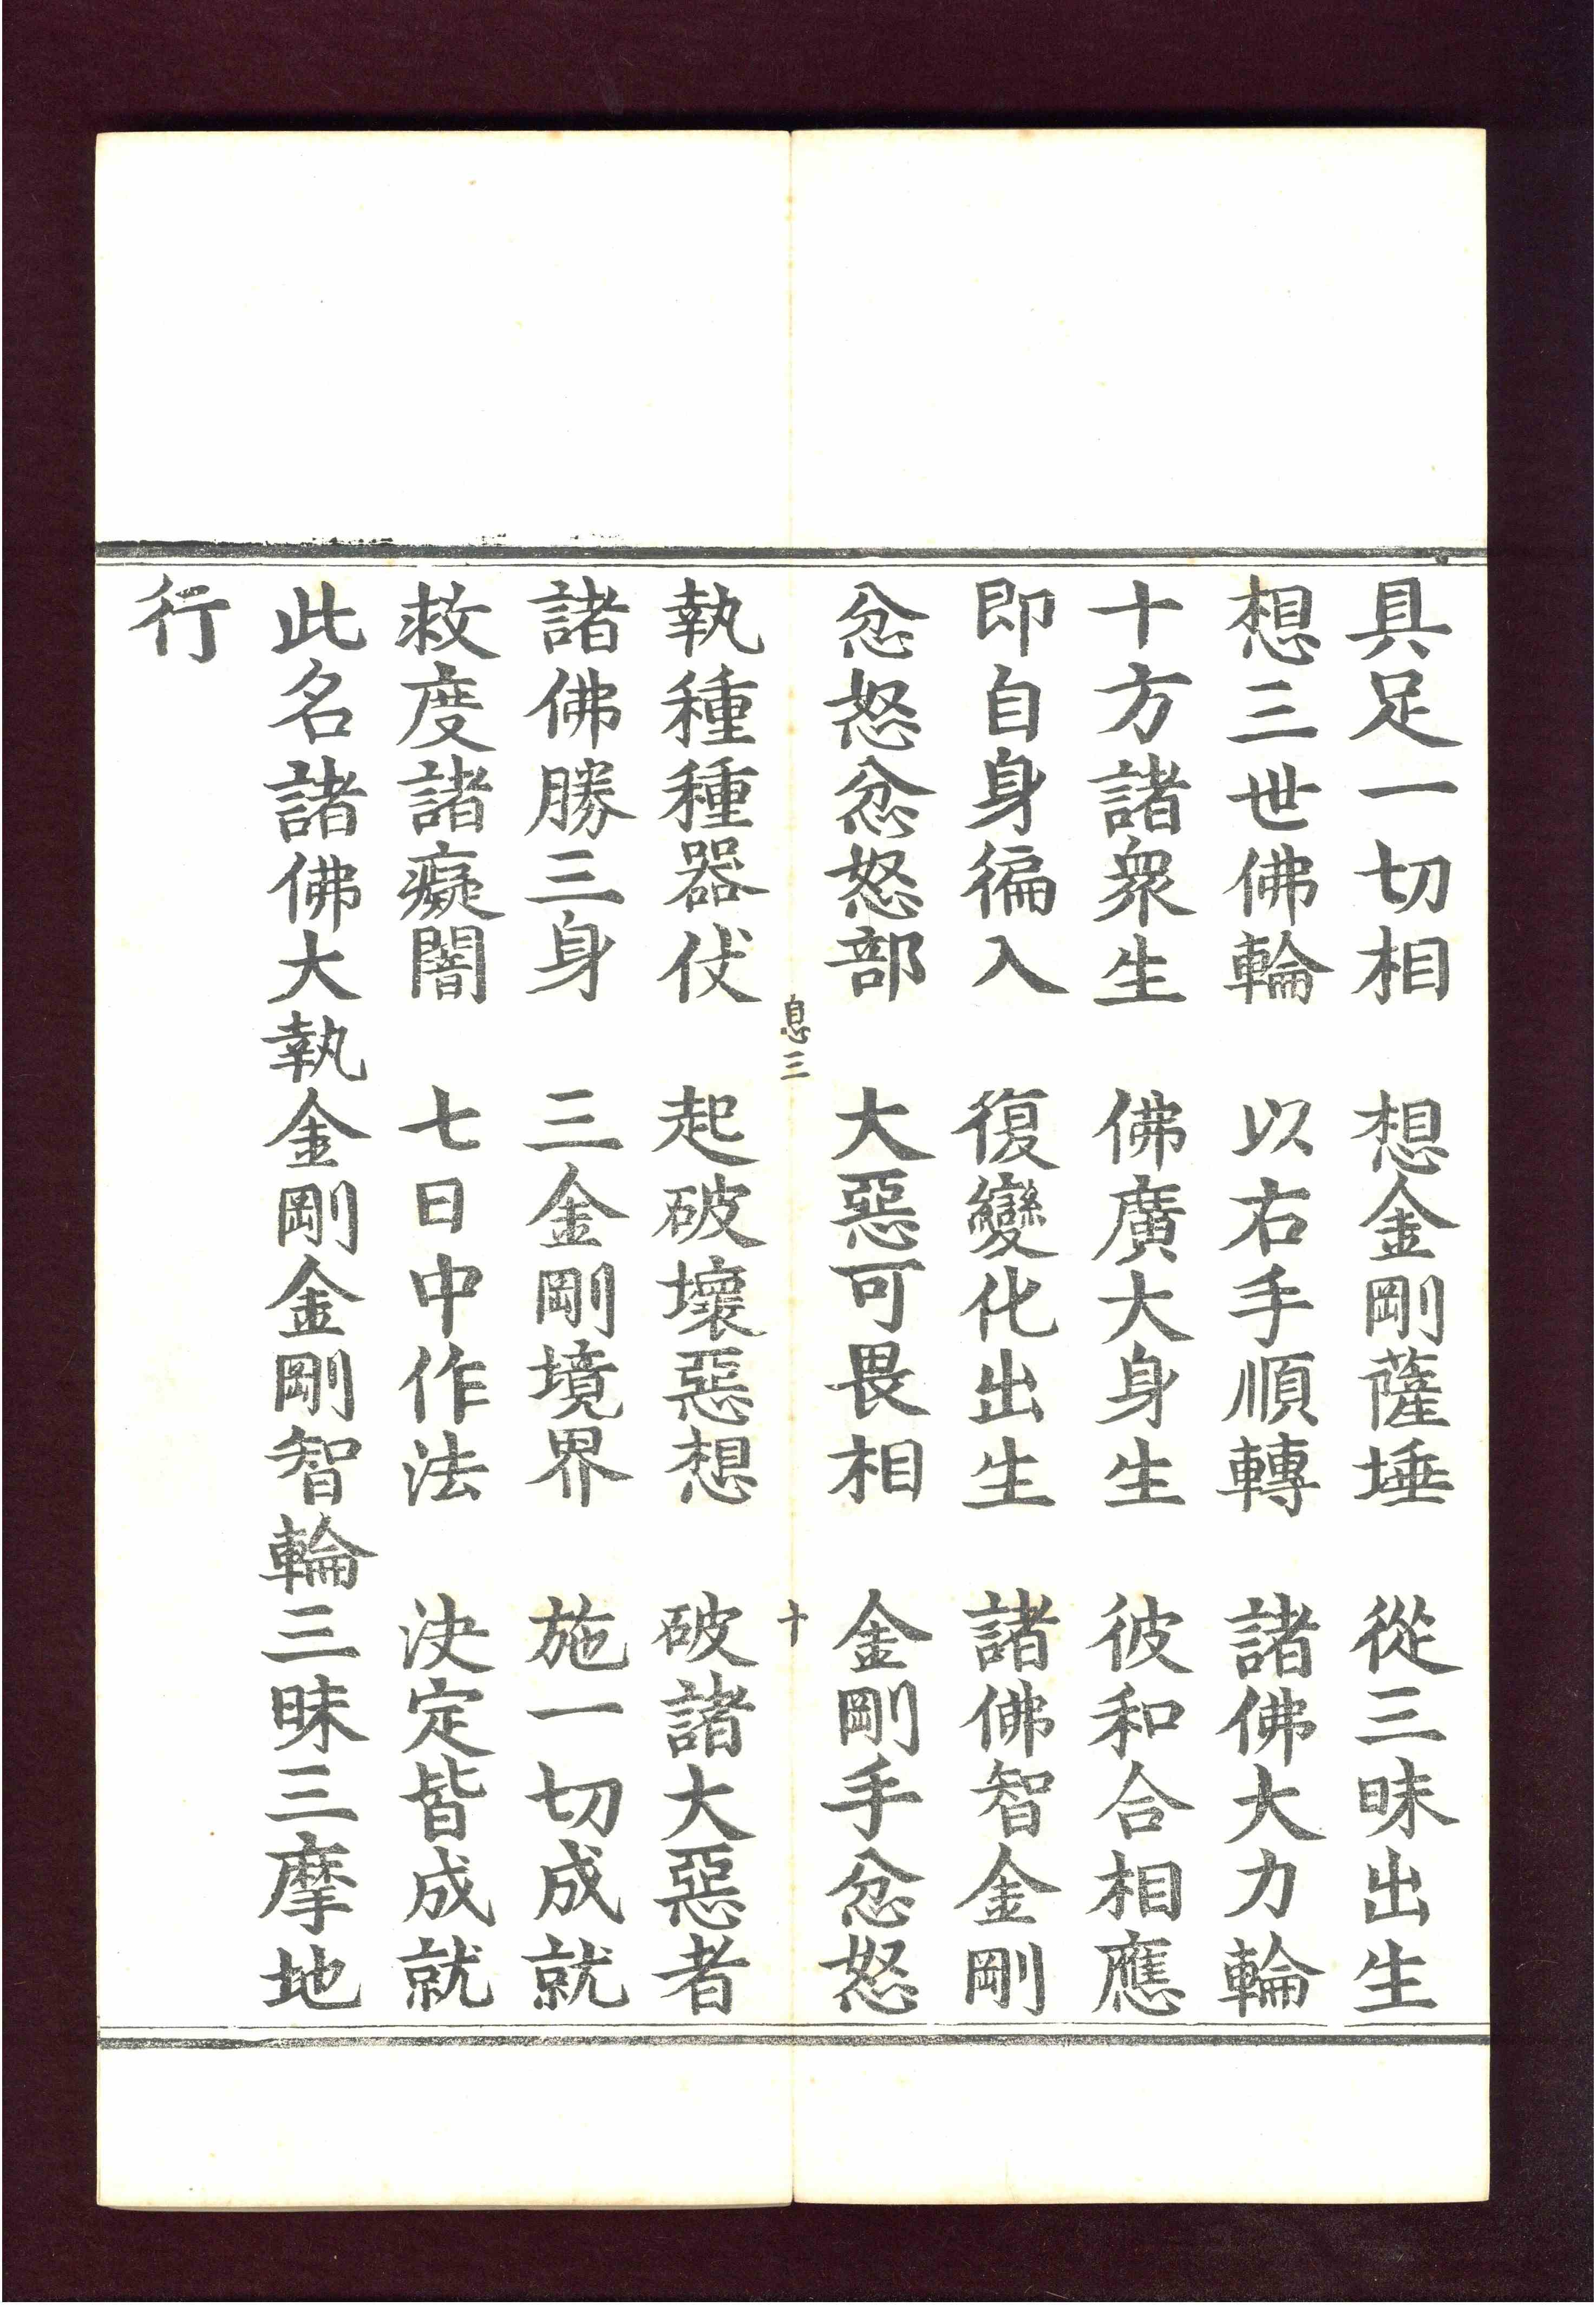 具足一切相　想金剛薩埵　從三昧出生
想三世佛輪　以右手順轉　諸佛大力輪
十方諸衆生　佛廣大身生　彼和合相應
即自身徧入　復變化出生　諸佛智金剛
忿怒忿怒部　大惡可畏相　金剛手忿怒
息三　十
執種種器仗　起破壞惡想　破諸大惡者
諸佛勝三身　三金剛境界　施一切成就
救度諸癡闇　七日中作法　決定皆成就
此名諸佛大執金剛金剛智輪三昧三摩地
行